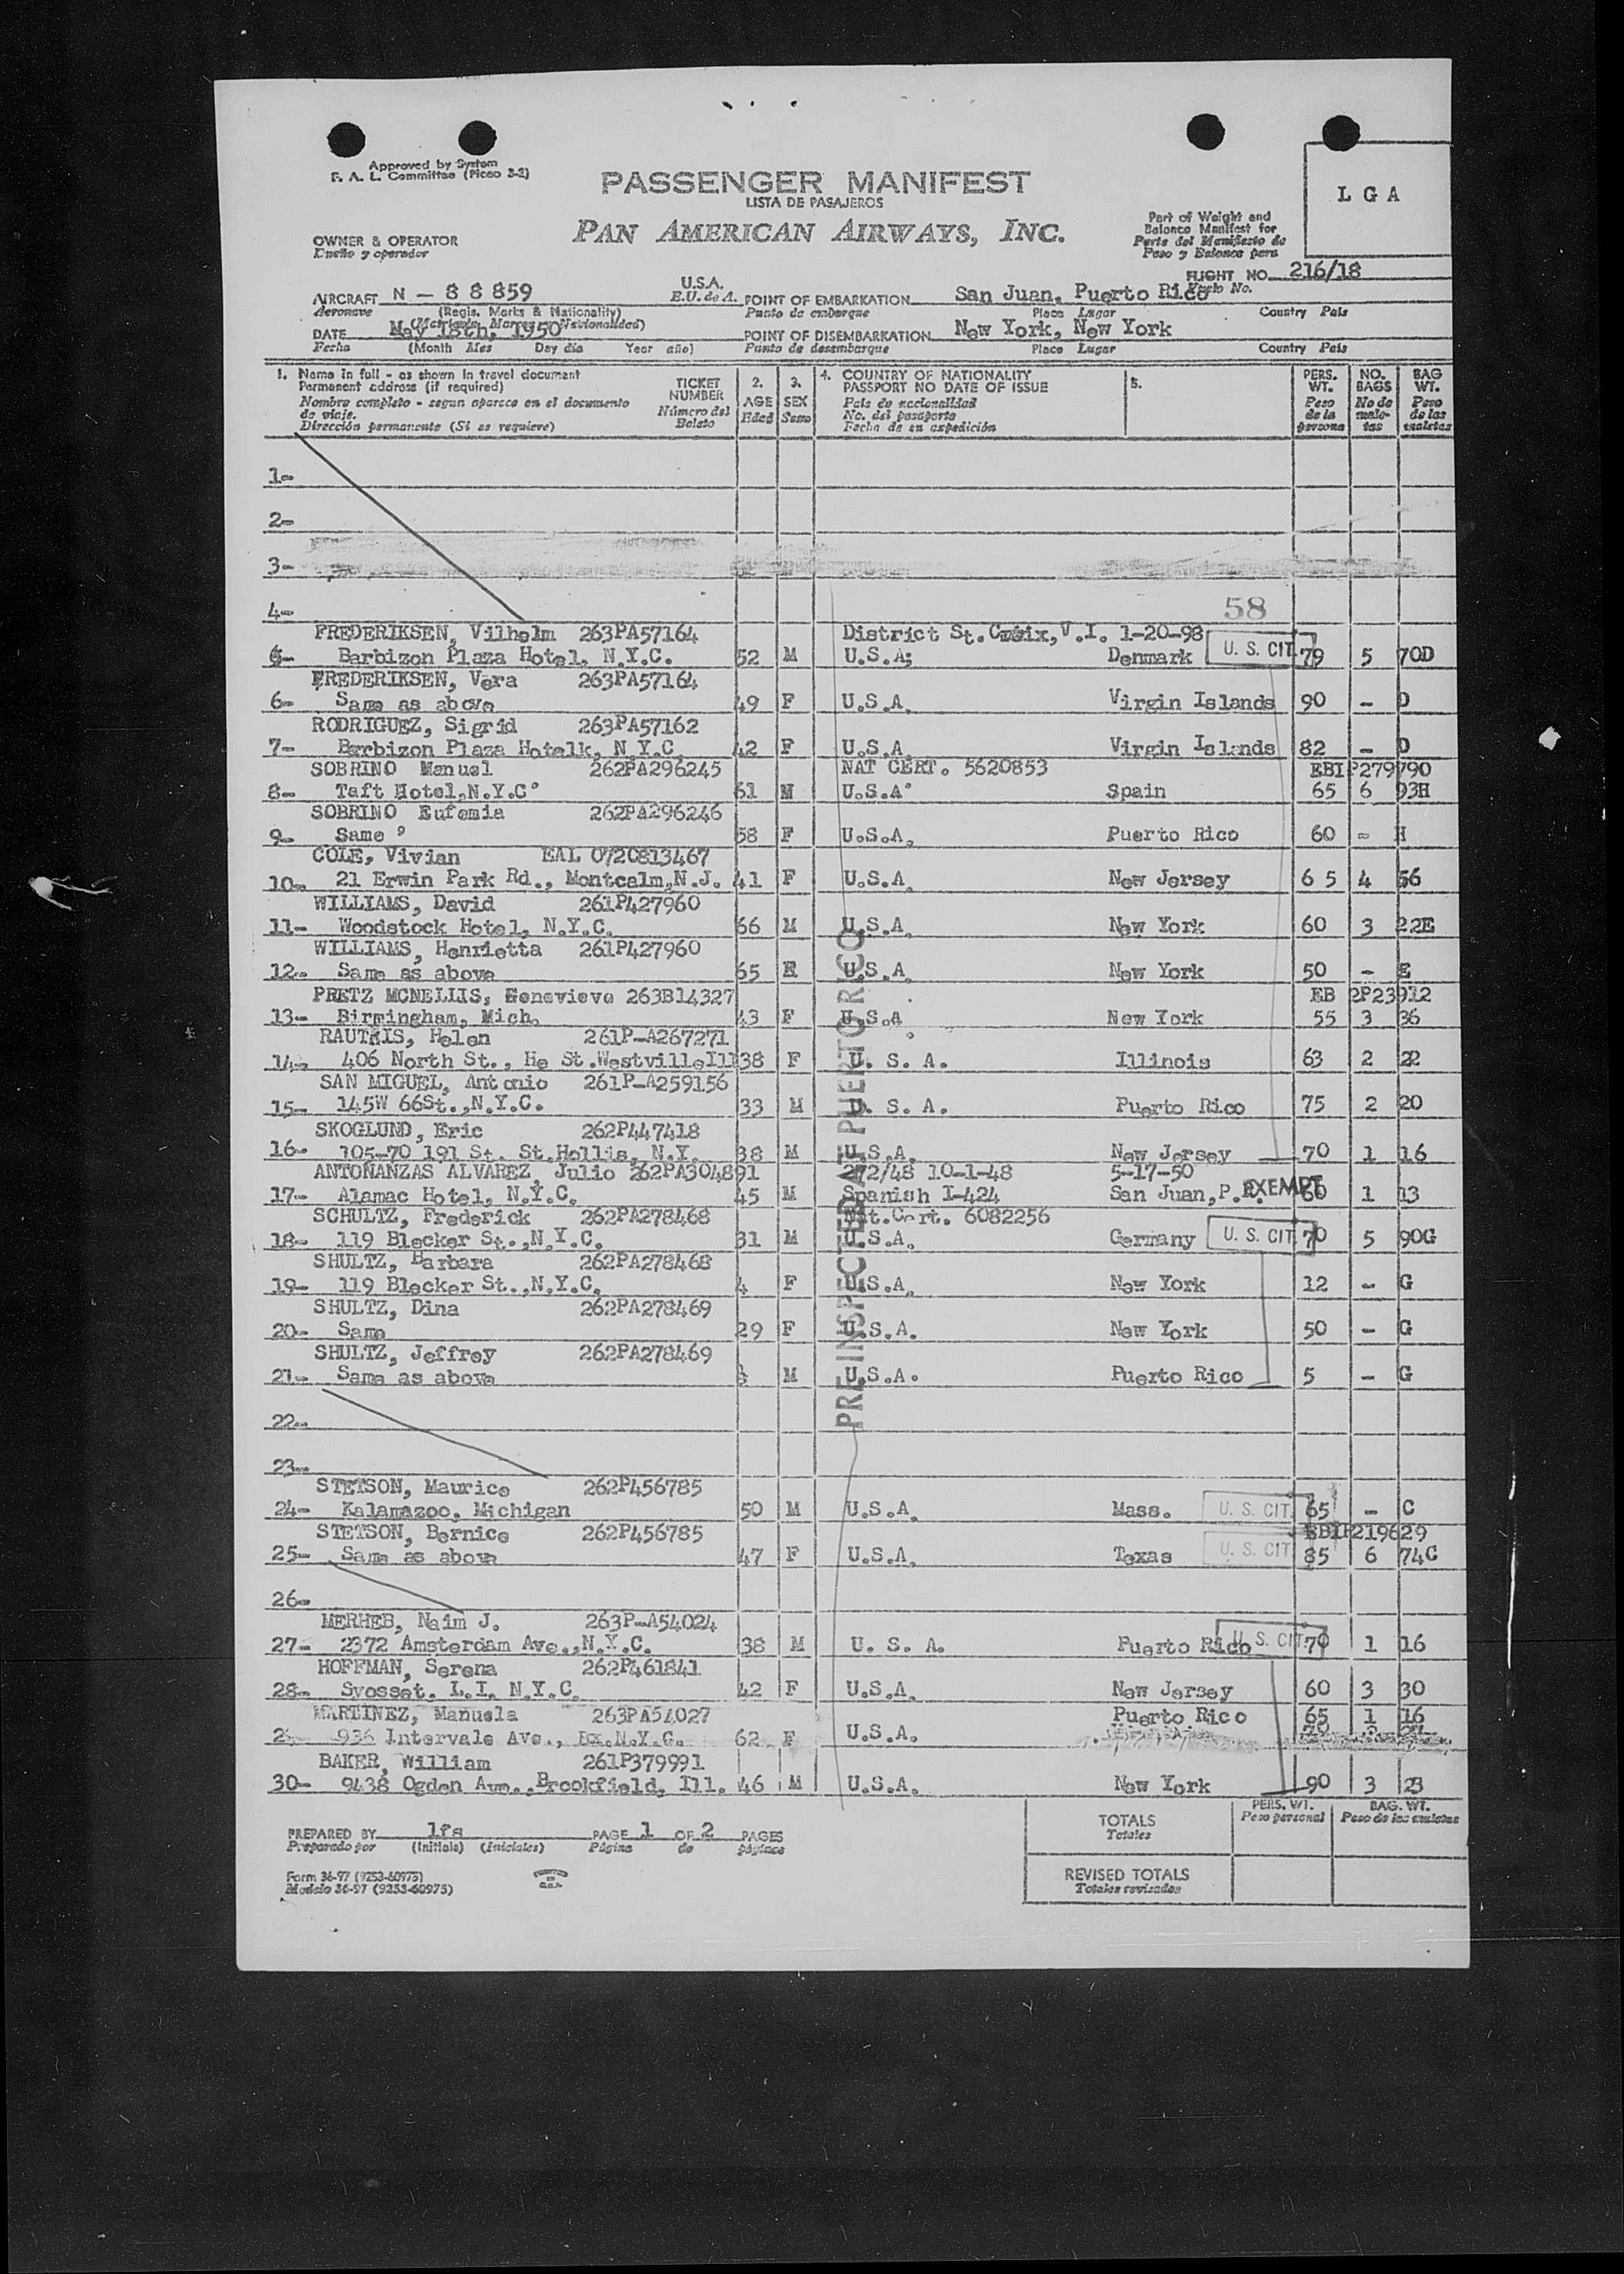 Approved by System
F. A. L. Committee (Picao 3-2)
L G A
PASSENGER MANIFEST
LISTA DE PASAJEROS
PAN AMERICAN AIRWAYS, INC.
Part of Weight and
Balance Manifest for
Parte del Manifiesto de
Peso y Balance para
OWNER & OPERATOR
Dueño y operador
FLIGHT NO. 216/18
Vuelo No.
AIRCRAFT N - 88859 U.S.A.
Aeronave (Regis. Marks & Nationality) E.U. de A.
(Matricula, Marcas y Nacionalidad)
POINT OF EMBARKATION San Juan, Puerto Rico
Punto de embarque Place Lugar Country Pais
DATE May 18th, 1950
Fecha (Month Mes Day dia Year año)
POINT OF DISEMBARKATION New York, New York
Punto de desembarque Place Lugar Country Pais
1. Name in full - as shown in travel document
Permanent address (if required)
Nombre completo - segun aparece en el documento
de viaje.
Dirección permanente (Si se requiere)
TICKET
NUMBER
Número del
Boleto
2.
AGE
Edad
3.
SEX
Sexo
4. COUNTRY OF NATIONALITY
PASSPORT NO DATE OF ISSUE
Pais de nacionalidad
No. del pasaporte
Fecha de su expedición
5.
PERS.
WT.
Peso
de la
persona
NO.
BAGS
No de
male-
tas
BAG
WT.
Peso
de las
maletas
1-
2-
3-
4-
58
FREDERIKSEN, Vilhelm 263PA57164 District St. Croix, V.I. 1-20-98
5- Barbizon Plaza Hotel, N.Y.C. 52 M U.S.A; Denmark U. S. CIT. 79 5 70D
FREDERIKSEN, Vera 263PA57164
6- Same as above 49 F U.S.A. Virgin Islands 90 - D
RODRIGUEZ, Sigrid 263PA57162
7- Barbizon Plaza Hotelk, N.Y.C 42 F U.S.A Virgin Islands 82 - D
SOBRINO Manuel 262PA296245 NAT CERT. 5620853 EBIP279790
8- Taft Hotel,N.Y.C. 61 M U.S.A. Spain 65 6 93H
SOBRINO Eufemia 262PA296246
9- Same 58 F U.S.A. Puerto Rico 60 - H
COLE, Vivian EAL 0720813467
10- 21 Erwin Park Rd., Montcalm,N.J. 41 F U.S.A. New Jersey 6 5 4 56
WILLIAMS, David 261P427960
11- Woodstock Hotel, N.Y.C. 66 M U.S.A. New York 60 3 22E
WILLIAMS, Henrietta 261P427960
12- Same as above 65 F U.S.A. New York 50 - E
PRETZ MCNELLIS, Genevieve 263B14327 EB 2P23912
13- Birmingham, Mich. 43 F U.S.A New York 55 3 36
RAUTEIS, Helen 261P-A267271
14- 406 North St., He St.WestvilleIll 38 F U. S. A. Illinois 63 2 22
SAN MIGUEL, Antonio 261P-A259156
15- 145W 66St.,N.Y.C. 33 M U. S. A. Puerto Rico 75 2 20
SKOGLUND, Eric 262P447418
16- 105-70 191 St. St.Hollis, N.Y. 38 M U.S.A. New Jersey 70 1 16
ANTOÑANZAS ALVAREZ, Julio 262PA304891 272/48 10-1-48 5-17-50
17- Alamac Hotel, N.Y.C. 45 M Spanish I-424 San Juan, P.R. EXEMPT 60 1 13
SCHULTZ, Frederick 262PA278468 Nat.Cert. 6082256
18- 119 Blecker St.,N.Y.C. 31 M U.S.A. Germany U. S. CIT. 70 5 90G
SHULTZ, Barbara 262PA278468
19- 119 Blecker St.,N.Y.C. 4 F U.S.A. New York 12 - G
SHULTZ, Dina 262PA278469
20- Same 29 F U.S.A. New York 50 - G
SHULTZ, Jeffrey 262PA278469
21- Same as above M U.S.A. Puerto Rico 5 - G
PREINSPECTED AT PUERTO RICO
22-
23-
STETSON, Maurice 262P456785
24- Kalamazoo, Michigan 50 M U.S.A. Mass. U. S. CIT. 65 - C
STETSON, Bernice 262P456785 EBIP219629
25- Same as above 47 F U.S.A. Texas U. S. CIT. 85 6 74C
26-
MERHEB, Naim J. 263P-A54024
27- 2372 Amsterdam Ave.,N.Y.C. 38 M U. S. A. Puerto Rico U. S. CIT. 70 1 16
HOFFMAN, Serena 262P461841
28- Syosset. L.I. N.Y.C. 42 F U.S.A. New Jersey 60 3 30
MARTINEZ, Manuela 263PA54027 Puerto Rico 65 1 16
2 936 Intervale Ave., Bx.N.Y.C. 62 F U.S.A.
BAKER, William 261P379991
30- 9438 Ogden Ave.,Brookfield, Ill. 46 M U.S.A. New York 90 3 23
PREPARED BY lfs PAGE 1 OF 2 PAGES
Preparado por (Initials) (Iniciales) Página de páginas
TOTALS
Totales
PERS. WT.
Peso personal
BAG. WT.
Peso de las maletas
REVISED TOTALS
Totales revisados
Form 36-97 (9253-60975)
Modelo 36-97 (9253-60975)